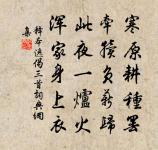 寒原耕種罷
牽犢負薪歸
此夜一爐火
渾家身上衣
釋本逸偈三首詞典網
集